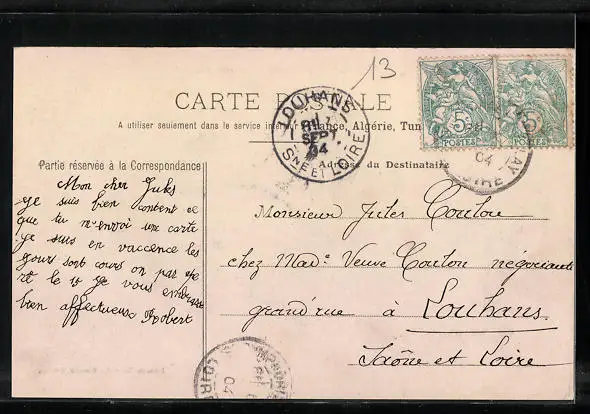 13
CARTE POSTALE
A utiliser seulement dans le service intérieur France, Algérie, Tun
Partie réservée à la Correspondance
Adresse du Destinataire
LOUHANS
SEPT
04
SNE ET LOIRE
5c
POSTES
5c
POSTES
04
LOIRE
Mon cher Juks
je suis bien content ce
que tu m'envoi une carte
je suis en vaccence les
jours sont cours on par
et le je vous embrasse
bien affectueux Robert
Monsieur Jules Coulon
chez Made Veuve Coulon négociante
grand'rue à Louhans
Saône et Loire
LOIRE
04